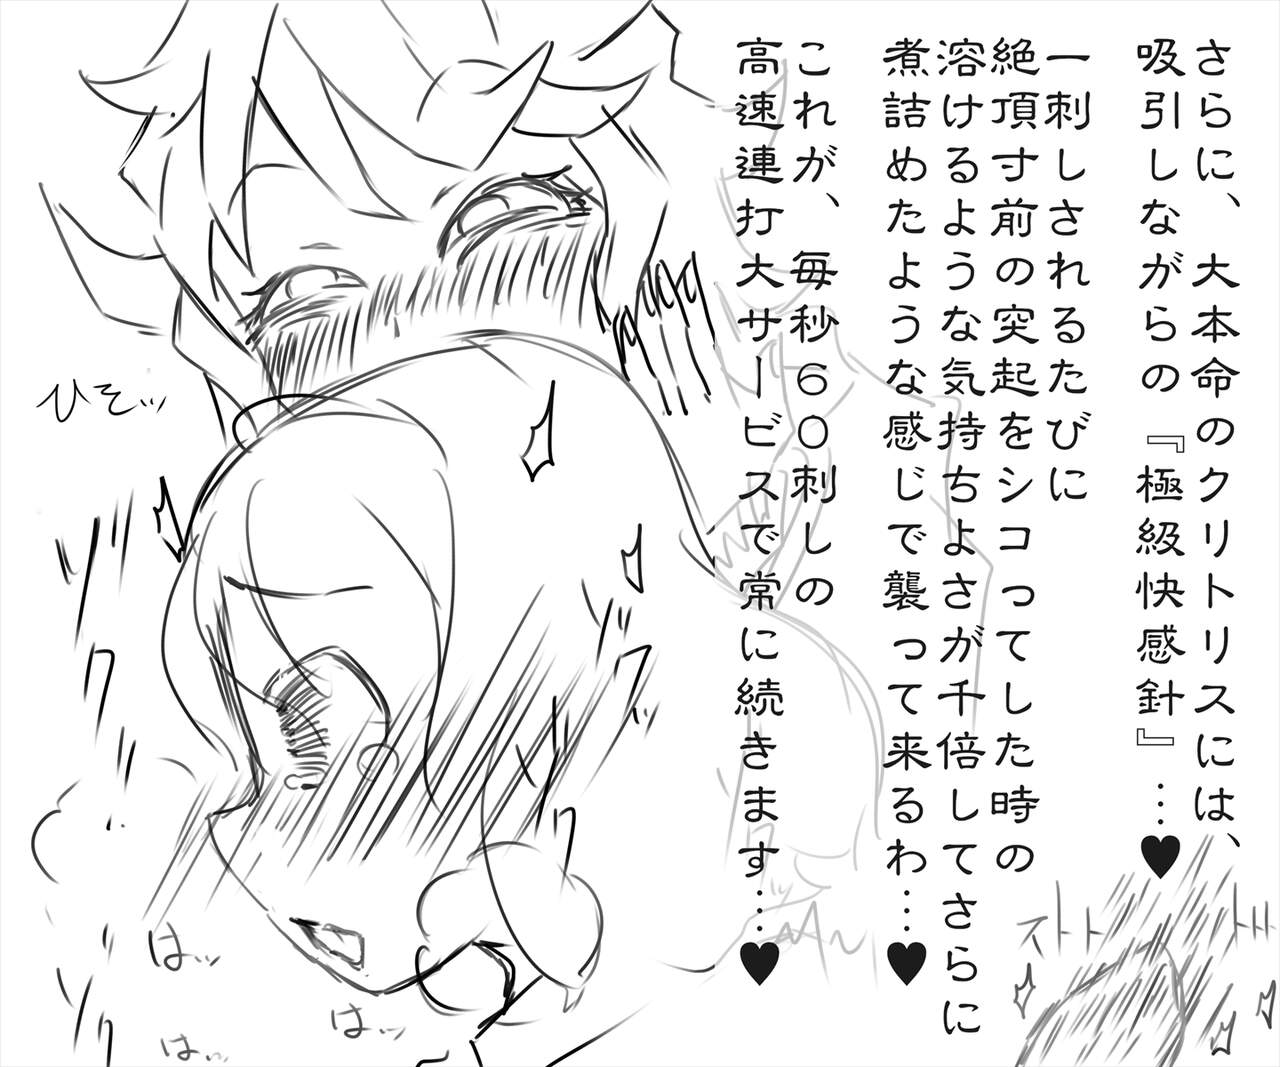 さらに、大本命のクリトリスには、
吸引しながらの『極級快感針』…♥
一刺しされるたびに
絶頂寸前の突起をシコってしした時の
溶けるような気持ちよさが千倍してさらに
煮詰めたような感じで襲って来るわ…♥
これが、毎秒60刺しの
高速連打大サービスで常に続きます…♥
ひそッ
はッ
はッ
はッ